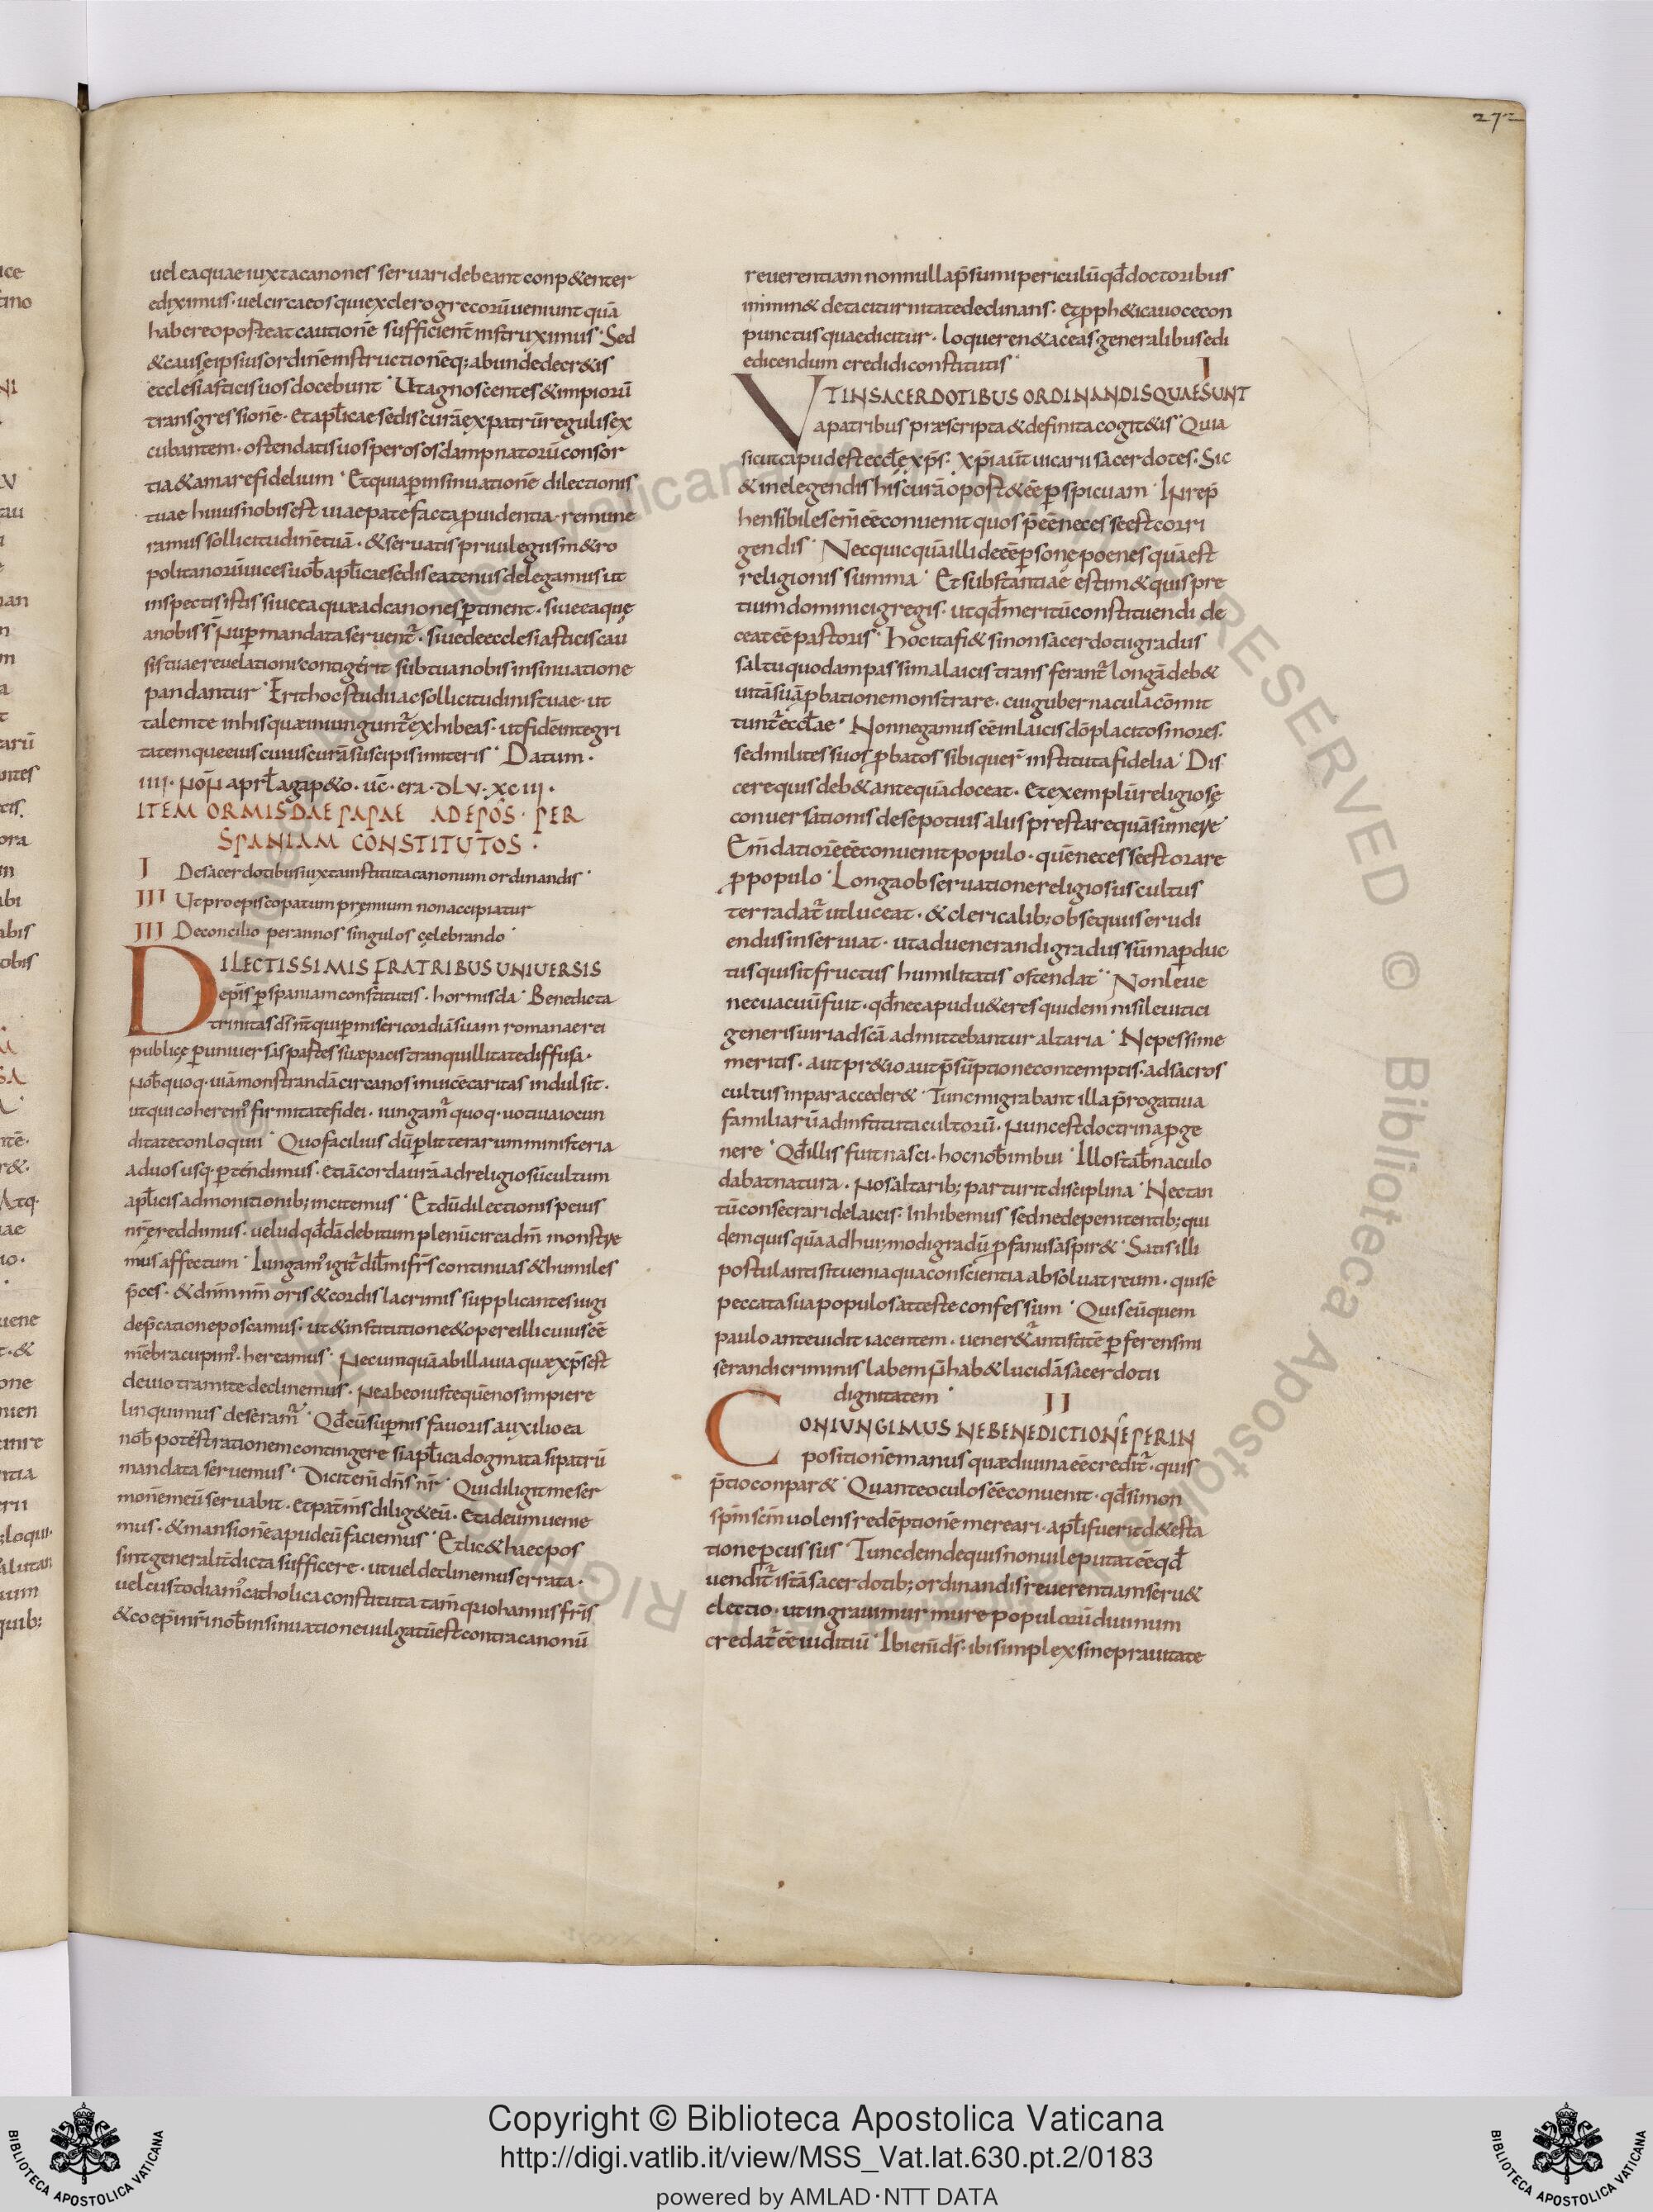 272
uel ea quae iuxta canones seruari debeant conp&enter
ediximus · uel circa eos qui ex clero grecorū ueniunt quā
habere oporteat cautionē sufficient̄ instruximus · Sed
& cause ipsius ordinē instructionēq; abunde decr&is
ecclesiasticis uos docebunt · Ut agnoscentes & impiorū
transgressionē · et apl̄icae sedis curā ex patrū regulis ex
cubantem · ostendatis uos perosos dampnatorū consor
tia & amare fidelium · Et quia p̱ insinuationē dilectionis
tuae huius nobis est uiae patefacta p̱uidentia · remune
ramus sollicitudinē tuā · & seruatis priuilegiis m&ro
politanorū uices uob̄ apl̄icae sedis eatenus delegamus ut
inspectis istis siue ea quæ ad canones p̱tinent · siue ea quę
a nobis s̄ nup̱ mandata seruent̄ · siue de ecclesiasticis cau
sis tuae reuelationi contigerit sub tua nobis insinuatione
pandantur · Erit hoc studii ac sollicitudinis tuae · ut
talem te in his quæ iniungunt̄ exhibeas · ut fidē integri
tatemque eius cuius curā suscipis imiteris · Datum ·
IIII · NON̄ aprl̄ agap&o · uc̄ · era · DLV · XCIII ·
ITEM ORMISDAE PAPAE AD EPOS̄ · PER
SPANIAM CONSTITUTOS ·
I De sacerdotibus iuxta instituta canonum ordinandis ·
III Ut pro episcopatum pręmium non accipiatur
III De concilio per annos singulos çelebrando ·
DILECTISSIMIS FRATRIBUS UNIUERSIS
epīs p̱ spaniam constitutis · hormisda · Benedicta
trinitas ds̄ nr̄ qui p̱ misericordiā suam romanae rei
publicę p̱ uniuersas partes suæ pacis tranquillitate diffusa ·
Nob̄ quoq · uiā monstrandā circa nos inuicē caritas indulsit ·
ut qui coherem᾽ firmitate fidei · iungam̄ quoq · uotiua iocun
ditate conloquii · Quo facilius dū p̱ litterarum ministeria
ad uos usq · p̱tendimus · etiā corda ur̄a ad religiosū cultum
apl̄icis admonitionib; incitemus · Et dū dilectionis p̱ eius
nr̄e reddimus · uelud qd̄dā debitum plenū circa dn̄m monstre
mus affectum · Iungam᾽ igit̄ dil̄mi frs̄ continuas & humiles
p̄ces · & dn̄m nr̄m oris & cordis lacrimis supplicantes iugi
dep̄catione poscamus · ut & institutione & opere illi cuius eē
mēbra cupim᾽ · hereamus · Nec umquā ab illa uia quæ xp̄s est
deuio tramite declinemus · Ne ab eo iuste quē nos impie re
linquimus deseram̄ · Qd̄ cū sup̱nis fauoris auxilio ea
nob̄ potest rationem contingere si apl̄ica dogmata si patrū
mandata seruemus · Dicit enī dn̄s nr̄ · Qui diligit me ser
monē meū seruabit · et pat̄ ms̄ dilig& eū · et ad eum uenie
mus · & mansionē apud eū faciemus · Et lic& haec pos
sint generalit̄ dicta sufficere · ut uel declinemus errata ·
uel custodiam᾽ catholica constituta tam̄ quo hannis fr̄is
& coepī nr̄i nob̄ insinuatione uulgatū est contra canonū
reuerentiam nonnulla p̄sumi periculū qd̄ doctoribus
inimin& de taciturnitate declinans · et p̱ph&ica uoce con
punctus qua edicitur · loqueren& aceas · generalibus edi
edicendum credidi constitutis ·
I
VT IN SACERDOTIBUS ORDINANDIS QUAE SUNT
a patribus præscripta & definita cogit&is · Quia
sicut capud est eccl̄ę xp̄s · xp̄i aut̄ uicarii sacerdotes · Sic
& in elegendis his curā oport& eē p̱spicuam · Inrep̄
hensibiles enī eē conuenit quos p̄eē necesse est corri
gendis · Nec quicquā illi deeē p̱sonę poenes quā est
religionis summa · Et substantiae estim& quis pre
tium dominici gregis · ut qd̄ meritū constituendi de
ceat eē pastoris · Hoc ita fi& si non sacerdotii gradus
saltu quodam passim a laicis transferant̄ longā deb&
uitā suā p̱batione monstrare · cui gubernacula cōmit
tunt̄ eccl̄ae · Non negamus eē in laicis dō placitos mores ·
sed milites suos p̱batos sibi quer̄ instituta fidelia · Dis
cere quis deb& antequā doceat · et exemplū religiosę
conuersationis de se potius aliis prestare quā sumere
Em̄datiorē eē conuenit populo · quē necesse est orare
p̱ populo · Longa obseruatione religiosus cultus
terradat̄ ut luceat · & clericalib; obsequiis erudi
endus inseruiat · ut ad uenerandi gradus sūma p̱duc
tus qui sit fructus humilitatis ostendat · Non leue
nec uacuū fuit · qd̄ nec apud u&eres quidem nisi leuitici
generis uiri ad scā admittebantur altaria · Ne pessime
meritis · aut pr&io aut p̄sūptione contemptis · ad sacros
cultus inpar acceder& · Tunc migrabant illa p̄rogatiua
familiarū ad instituta cultorū · Nunc est doctrina p̱ ge
nere · Qd̄ illis fuit nasci · hoc nob̄ imbui · Illos tab̄naculo
dabat natura · Nos altarib; parturit disciplina · Nec tan
tū consecrari de laicis · Inhibemus sed ne de penitentib; qui
dem quisquā ad huiusmodi gradū p̱fanus aspir& · Satis illi
postulanti sit uenia qua conscientia absoluat reum · qui se
peccata sua populo sat teste confessum · Quis eū quem
paulo ante uidit iacentem · uener&̄ antistitē p̱ferens mi
serandi criminis labem n̄ hab& lucidā sacerdotii
dignitatem ·
II
CONIUNGIMUS NE BENEDICTIONĒ PER IN
positionē manus quæ diuina eē credit̄ · quis
p̄tio conpar& · Quante oculos eē conuenit · qd̄ simon
spm̄ scm̄ uolens redēptione mereari · apl̄i fuerit d&esta
tione p̱cussus · Tunc deinde quis non uile putat eē qd̄
uendit̄ istā sacerdotib; ordinandis reuerentiam seru&
electio · ut in graui murmure populorū diuinum
credat̄ eē iuditiū · Ibi enī ds̄ · ibi simplex sine prauitate
Copyright © Biblioteca Apostolica Vaticana
http://digi.vatlib.it/view/MSS_Vat.lat.630.pt.2/0183
powered by AMLAD·NTT DATA
BIBLIOTECA APOSTOLICA VATICANA
BIBLIOTECA APOSTOLICA VATICANA